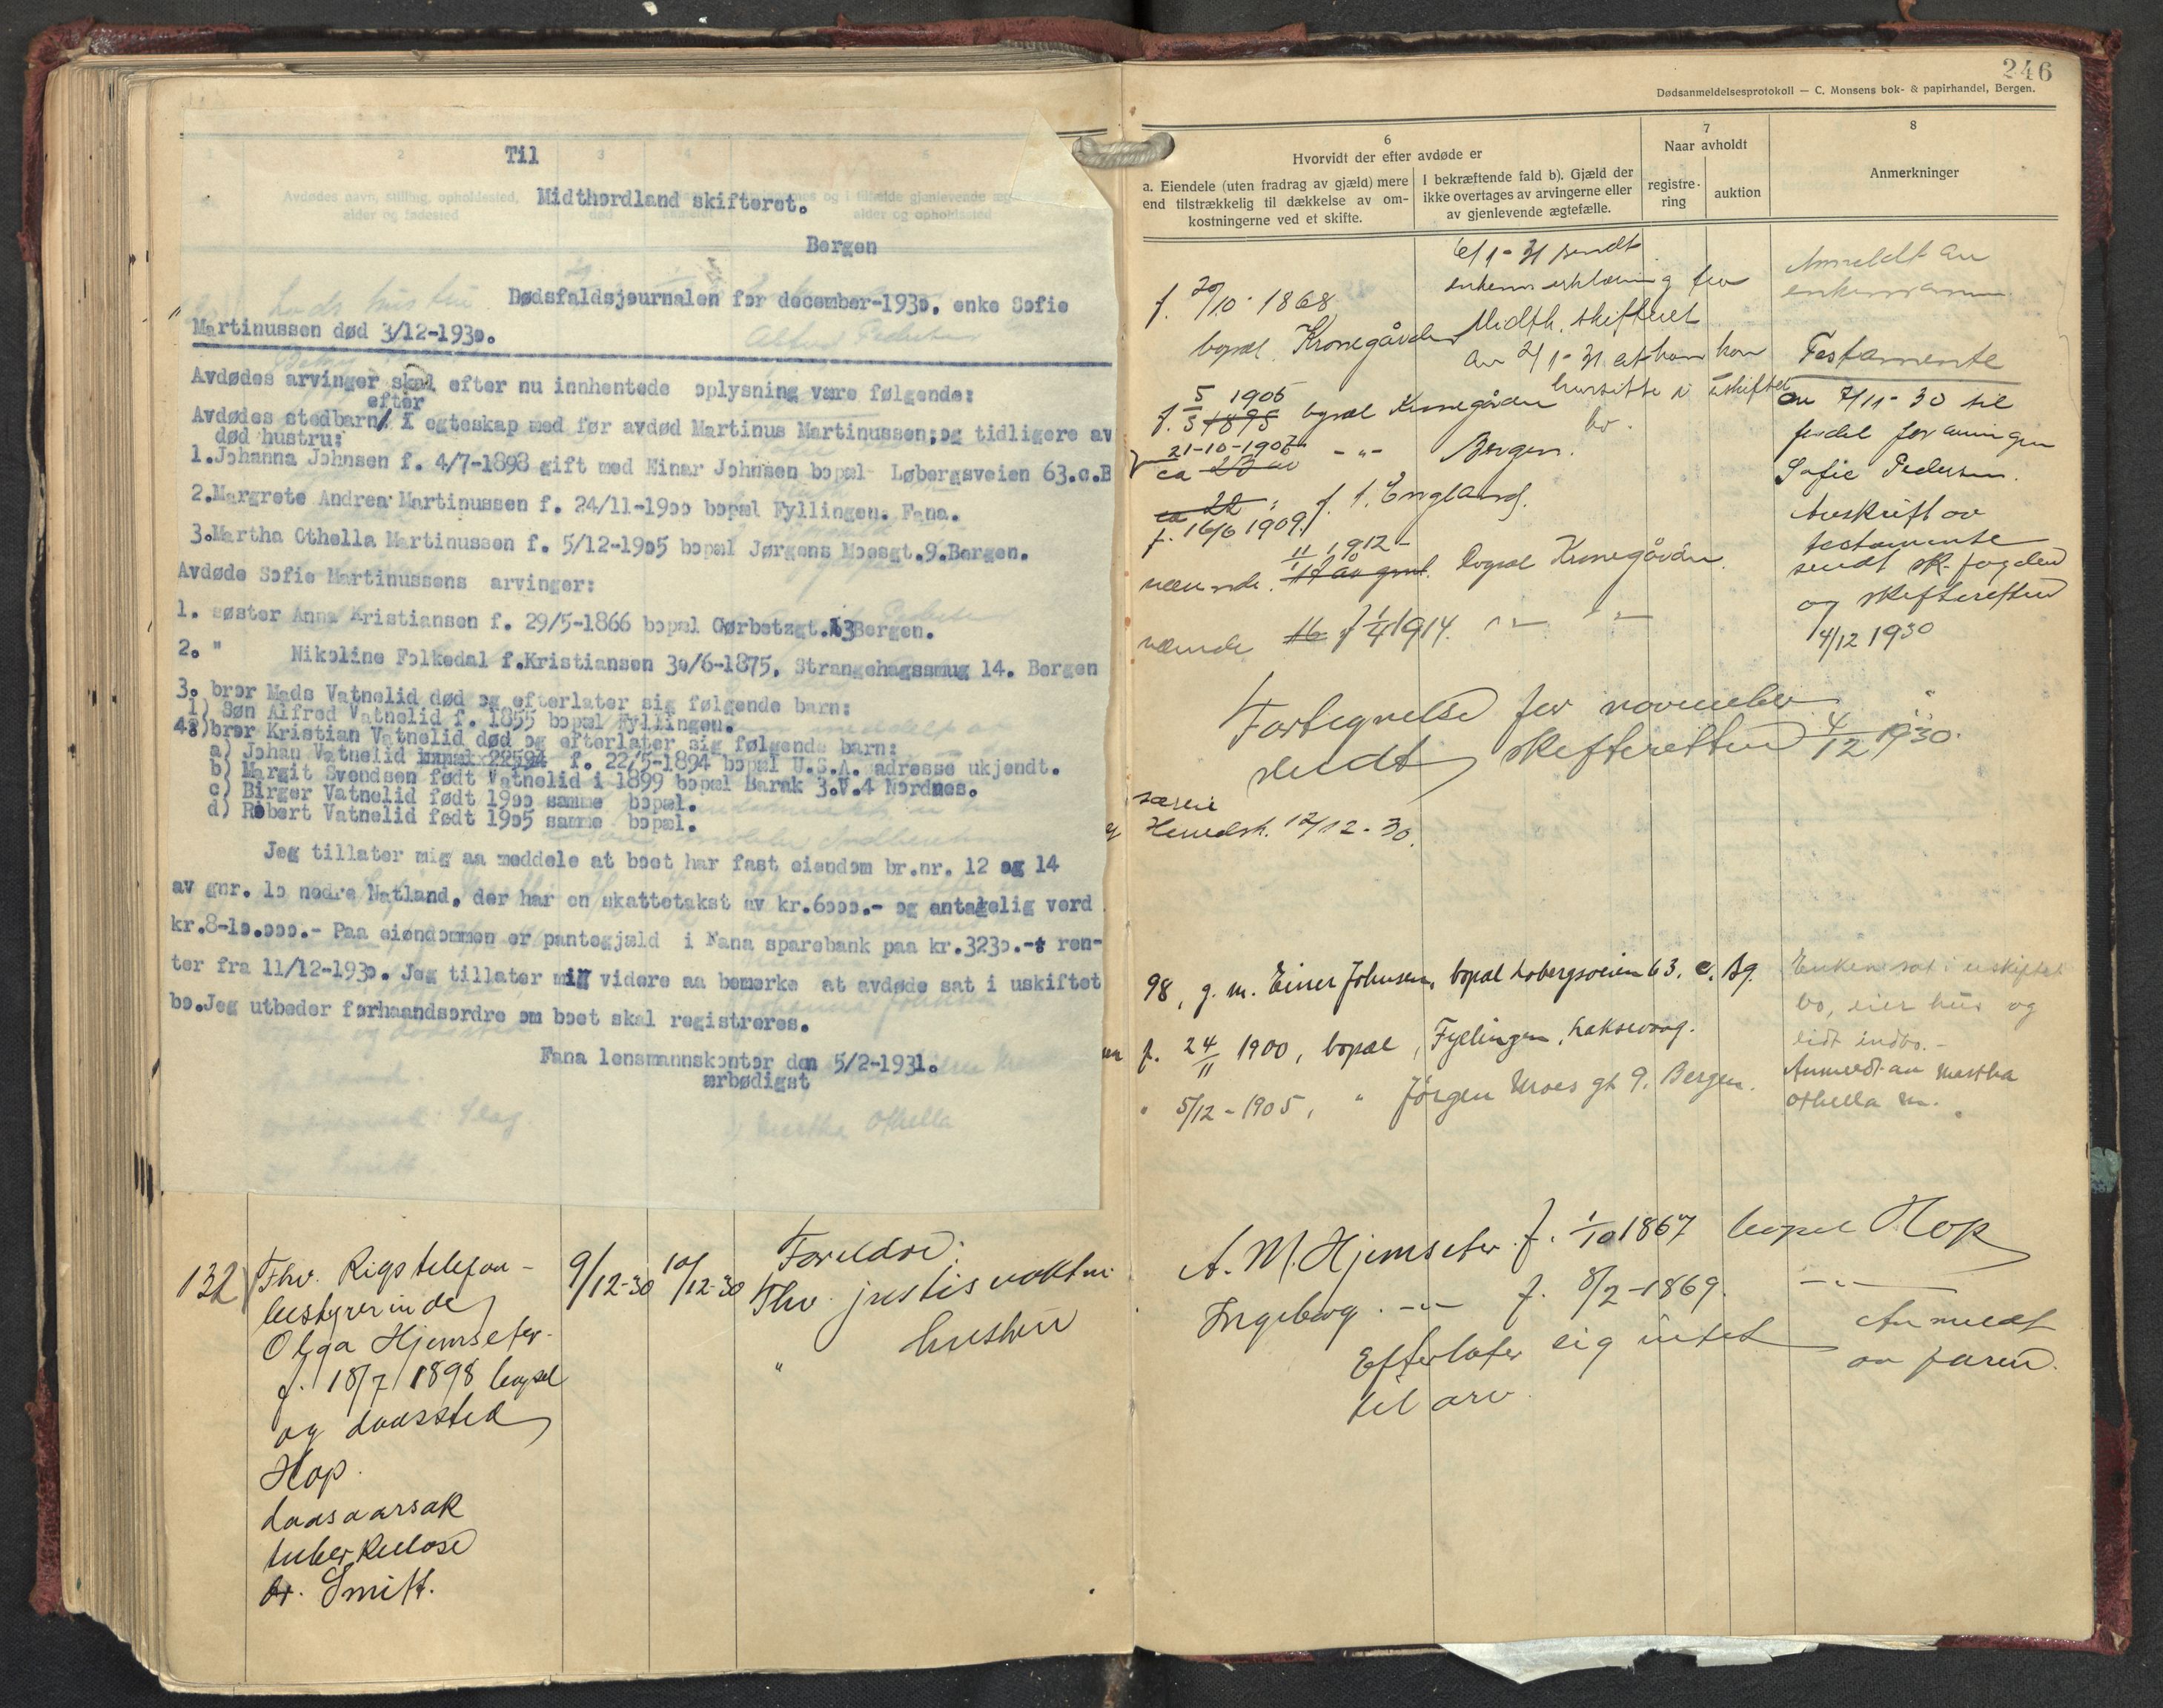 Til
Midthordland skifteret.
Bergen
Dødsfaldsjournalen for december-1930, enke Sofie
Martinussen død 3/12-1930.
Avdødes arvinger skal efter nu innhentede oplysning være følgende:
efter
Avdødes stedbarn/ I egteskap med før avdød Martinus Martinussen;og tidligere av
død hustru:
1.Johanna Johnsen f. 4/7-1898 gift med Einar Johnsen bopæl Løbergsveien 63.c.B
2.Margrete Andrea Martinussen f. 24/11-1900 bopæl Fyllingen. Fana.
3.Martha Othella Martinussen f. 5/12-1905 bopæl Jørgens Moesgt.9.Bergen.
Avdøde Sofie Martinussens arvinger:
1. søster Anna Kristiansen f. 29/5-1866 bopæl Gørbetzgt.13 Bergen.
2. " Nikoline Folkedal f.Kristiansen 30/6-1875, Strangehagssmug 14. Bergen
3. bror Mads Vatnelid død og efterlater sig følgende barn:
1) Søn Alfred Vatnelid f. 1855 bopæl Fyllingen.
4) bror Kristian Vatnelid død og efterlater sig følgende barn:
a) Johan Vatnelid f. 22/5-1894 bopæl U.S.A. adresse ukjendt.
b) Margit Svendsen født Vatnelid i 1899 bopæl Barak 3.V.4 Nordnes.
c) Birger Vatnelid født 1900 samme bopæl.
d) Robert Vatnelid født 1905 samme bopæl.
Jeg tillater mig aa meddele at boet har fast eiendom br.nr. 12 og 14
av gnr. 10 nedre Natland, der har en skattetakst av kr.6000.- og antagelig verd
kr.8-10.000.- Paa eiendommen er pantegjæld i Fana sparebank paa kr.3230.- ren-
ter fra 11/12-1930. Jeg tillater mig videre aa bemerke at avdøde sat i uskiftet
bo.Jeg utbeder forhaandsordre om boet skal registreres.
Fana lensmannskontor den 5/2-1931.
ærbødigst
Martha Othella
132 Fhv. Rigstelefon- 9/12-30 10/12-30 Foreldre:
bestyrerinde Fhv. justisvaktm.
Olga Hjemseter " hustru
f. 18/7 1898 bopæl
og dødssted
Hop.
dødsaarsak
tuberkulose
dr. Smitt.
246
Dødsanmeldelsesprotokoll — C. Monsens bok- & papirhandel, Bergen.
6 7 8
Hvorvidt der efter avdøde er Naar avholdt
a. Eiendele (uten fradrag av gjæld) mere
end tilstrækkelig til dækkelse av om-
kostningerne ved et skifte.
I bekræftende fald b). Gjæld der
ikke overtages av arvingerne eller
av gjenlevende ægtefælle.
registre-
ring
auktion
Anmerkninger
6/1-31 sendt
enkem. erklæring fra
Midth. skifteret
av 2/1-31 at han kan
hensitte i uskiftet
bo.
f. 20/10 1868
bopæl Kronegården
f. 5/3 1905 1895 bopæl Kronegården
21-10-1907
ca 23 år -"- Bergen.
ca 22 " f. i England.
f. 16/6 1909.
11/10 1912 -
værende 17 år gml. bopæl Kronegården.
værende 16 f 1/4 1914. -"- -"-
Anmeldt av
enkemannen
Testamente
av 7/11-30 til
fordel for
Sofie Pedersen.
Avskrift av
testamente
sendt sk.fogden
og skifteretten
4/12 1930
Fortegnelse for november
sendt skifteretten 4/12 1930.
Herredsk. 12/12-30.
98, g. m. Einer Johnsen, bopæl Løbergsveien 63. c. Bg.
f. 24/11 1900, bopæl, Fyllingen, Laksevaag.
" 5/12-1905, " Jørgen Moes gt 9. Bergen.
Enken sat i uskiftet
bo, eier hus og
lidt indbo.-
Anmeldt av Martha
Othella M.
A. M. Hjemseter f. 1/10 1867 bopæl Hop
Ingeborg -"- f. 8/2-1869. -"-
Efterlater sig intet
til arv.
Anmeldt
av faren.